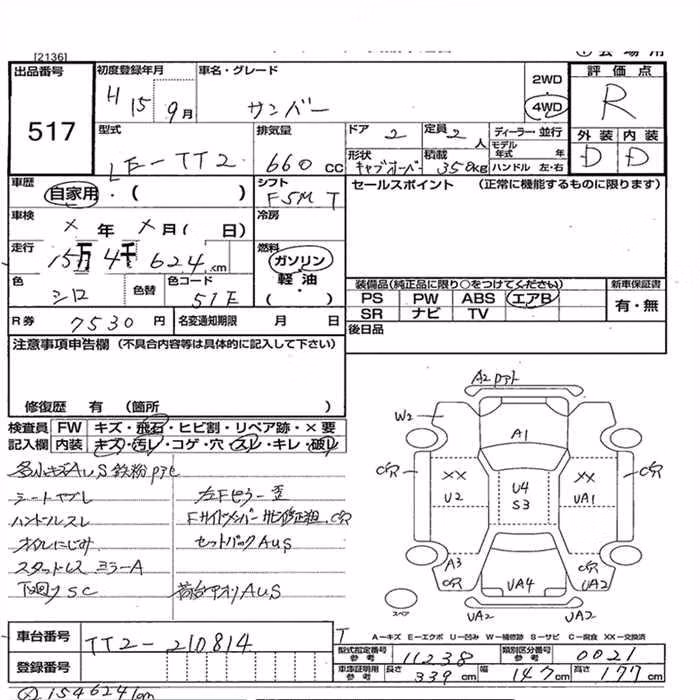 [2136]
出品番号 初度登録年月 車名・グレード 2WD 評価点
517 H15 9月 サンバー 4WD R
型式 排気量 ドア 定員 ディーラー・並行 外装 内装
LE-TT2 660 cc 2 2人 モデル年式 年 D D
形状 積載 ハンドル 左・右
キャブオーバー 350kg
車歴 自家用・( ) シフト F5M T セールスポイント (正常に機能するものに限ります)
車検 × 年 × 月( 日) 冷房
走行 15万4千624km 燃料 ガソリン・軽油・( )
色 シロ 色替 色コード 51E
装備品(純正品に限り○をつけてください) 新車保証書
PS PW ABS エアB 有・無
SR ナビ TV
R券 7530円 名変通知期限 月 日 後日品
注意事項申告欄(不具合内容等は具体的に記入して下さい)
修復歴 有 (箇所 )
検査員 FW キズ・飛石・ヒビ割・リペア跡・×要
記入欄 内装 キズ・汚レ・コゲ・穴・スレ・キレ・破レ
シートヤブレ
ハンドルスレ Fサイドメンバー
オイルにじみ セットバックAUS
スタッドレス ミラーA
下回りSC 荷台アオリAUS
A2
W2 A1
C穴 XX U4 XX C穴
U2 S3 UA1
A3 C穴
C穴 UA4 UA2
スペア UA2 UA2
車台番号 TT2-210814
登録番号
A-キズ E-エクボ U-凹み W-補修跡 S-サビ C-腐食 XX-交換済
型式指定番号 参考 11238 類別区分番号 参考 0021
車庫証明用 参考 長さ 339cm 幅 147cm 高さ 177cm
154624km